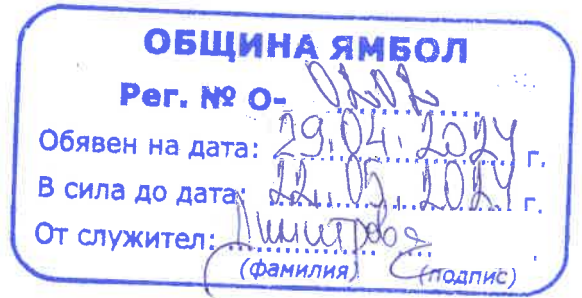 ОБЩИНА ЯМБОЛ
Рег. № О- 0202
Обявен на дата: 29.04.2024 г.
В сила до дата: 22.05.2024 г.
От служител: Димитрова
(фамилия) (подпис)